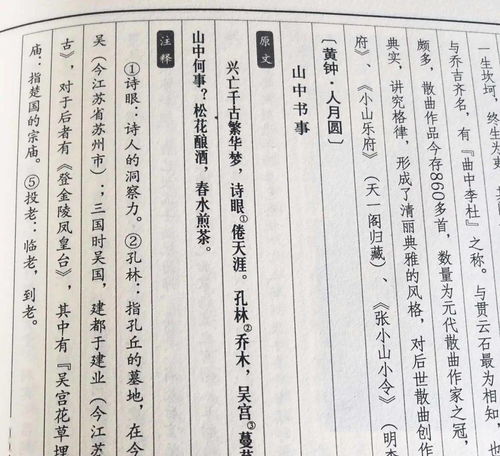 一生坎坷，终生为吏，
与乔吉齐名，有『曲中李杜』之称。与贯云石最为相知，也
颇多，散曲作品今存860多首，数量为元代散曲作家之冠，
典实，讲究格律，形成了清丽典雅的风格，对后世散曲创作
府》、《小山乐府》（天一阁归藏）、《张小山小令》（明李
〔黄钟·人月圆〕
山中书事
原文
兴亡千古繁华梦，诗眼①倦天涯。孔林②乔木，吴宫③蔓草
山中何事？松花酿酒，春水煎茶。
注释
①诗眼：诗人的洞察力。②孔林：指孔丘的墓地，在今
吴（今江苏省苏州市）；三国时吴国，建都于建业（今江苏
古》，对于后者有《登金陵凤皇台》，其中有『吴宫花草埋
庙：指楚国的宗庙。⑤投老：临老，到老。